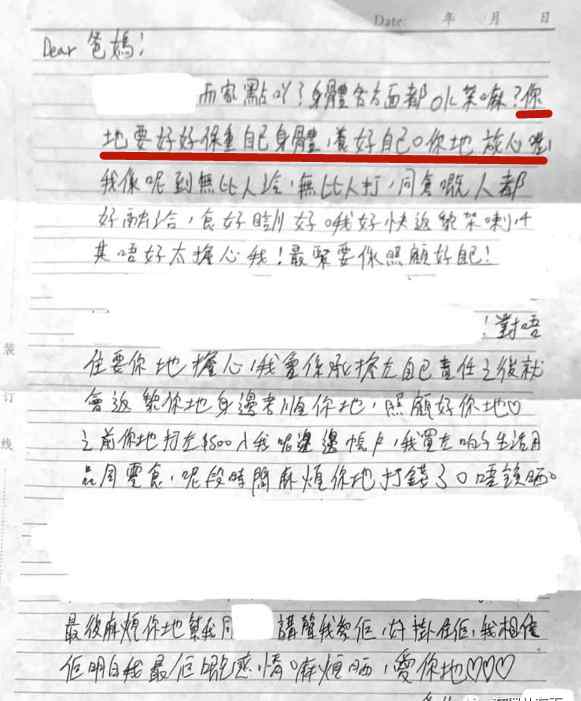 Date: 年 月 日
Dear 爸媽！
而家點吖？身體各方面都ok架嘛？你
地要好好保重自己身體，養好自己。你地放心嘅
我係呢到無比人蝦，無比人打，同倉嘅人都
好融洽，食好瞓好。我好快返黎架喇！
其唔好太擔心我！最緊要你照顧好自己！
！對唔
住要你地擔心，我會係承擔左自己責任之後就
會返黎你地身邊孝順你地，照顧好你地♡
之前你地打左$500入我呢邊邊帳戶，我買左啲生活用
品同零食，呢段時間麻煩你地打錢了。唔該晒。
最後麻煩你地幫我同 講聲我愛佢，好掛住佢，我相信
佢明白我最佢嘅感情。麻煩晒，愛你地♡♡♡
裝
訂
线